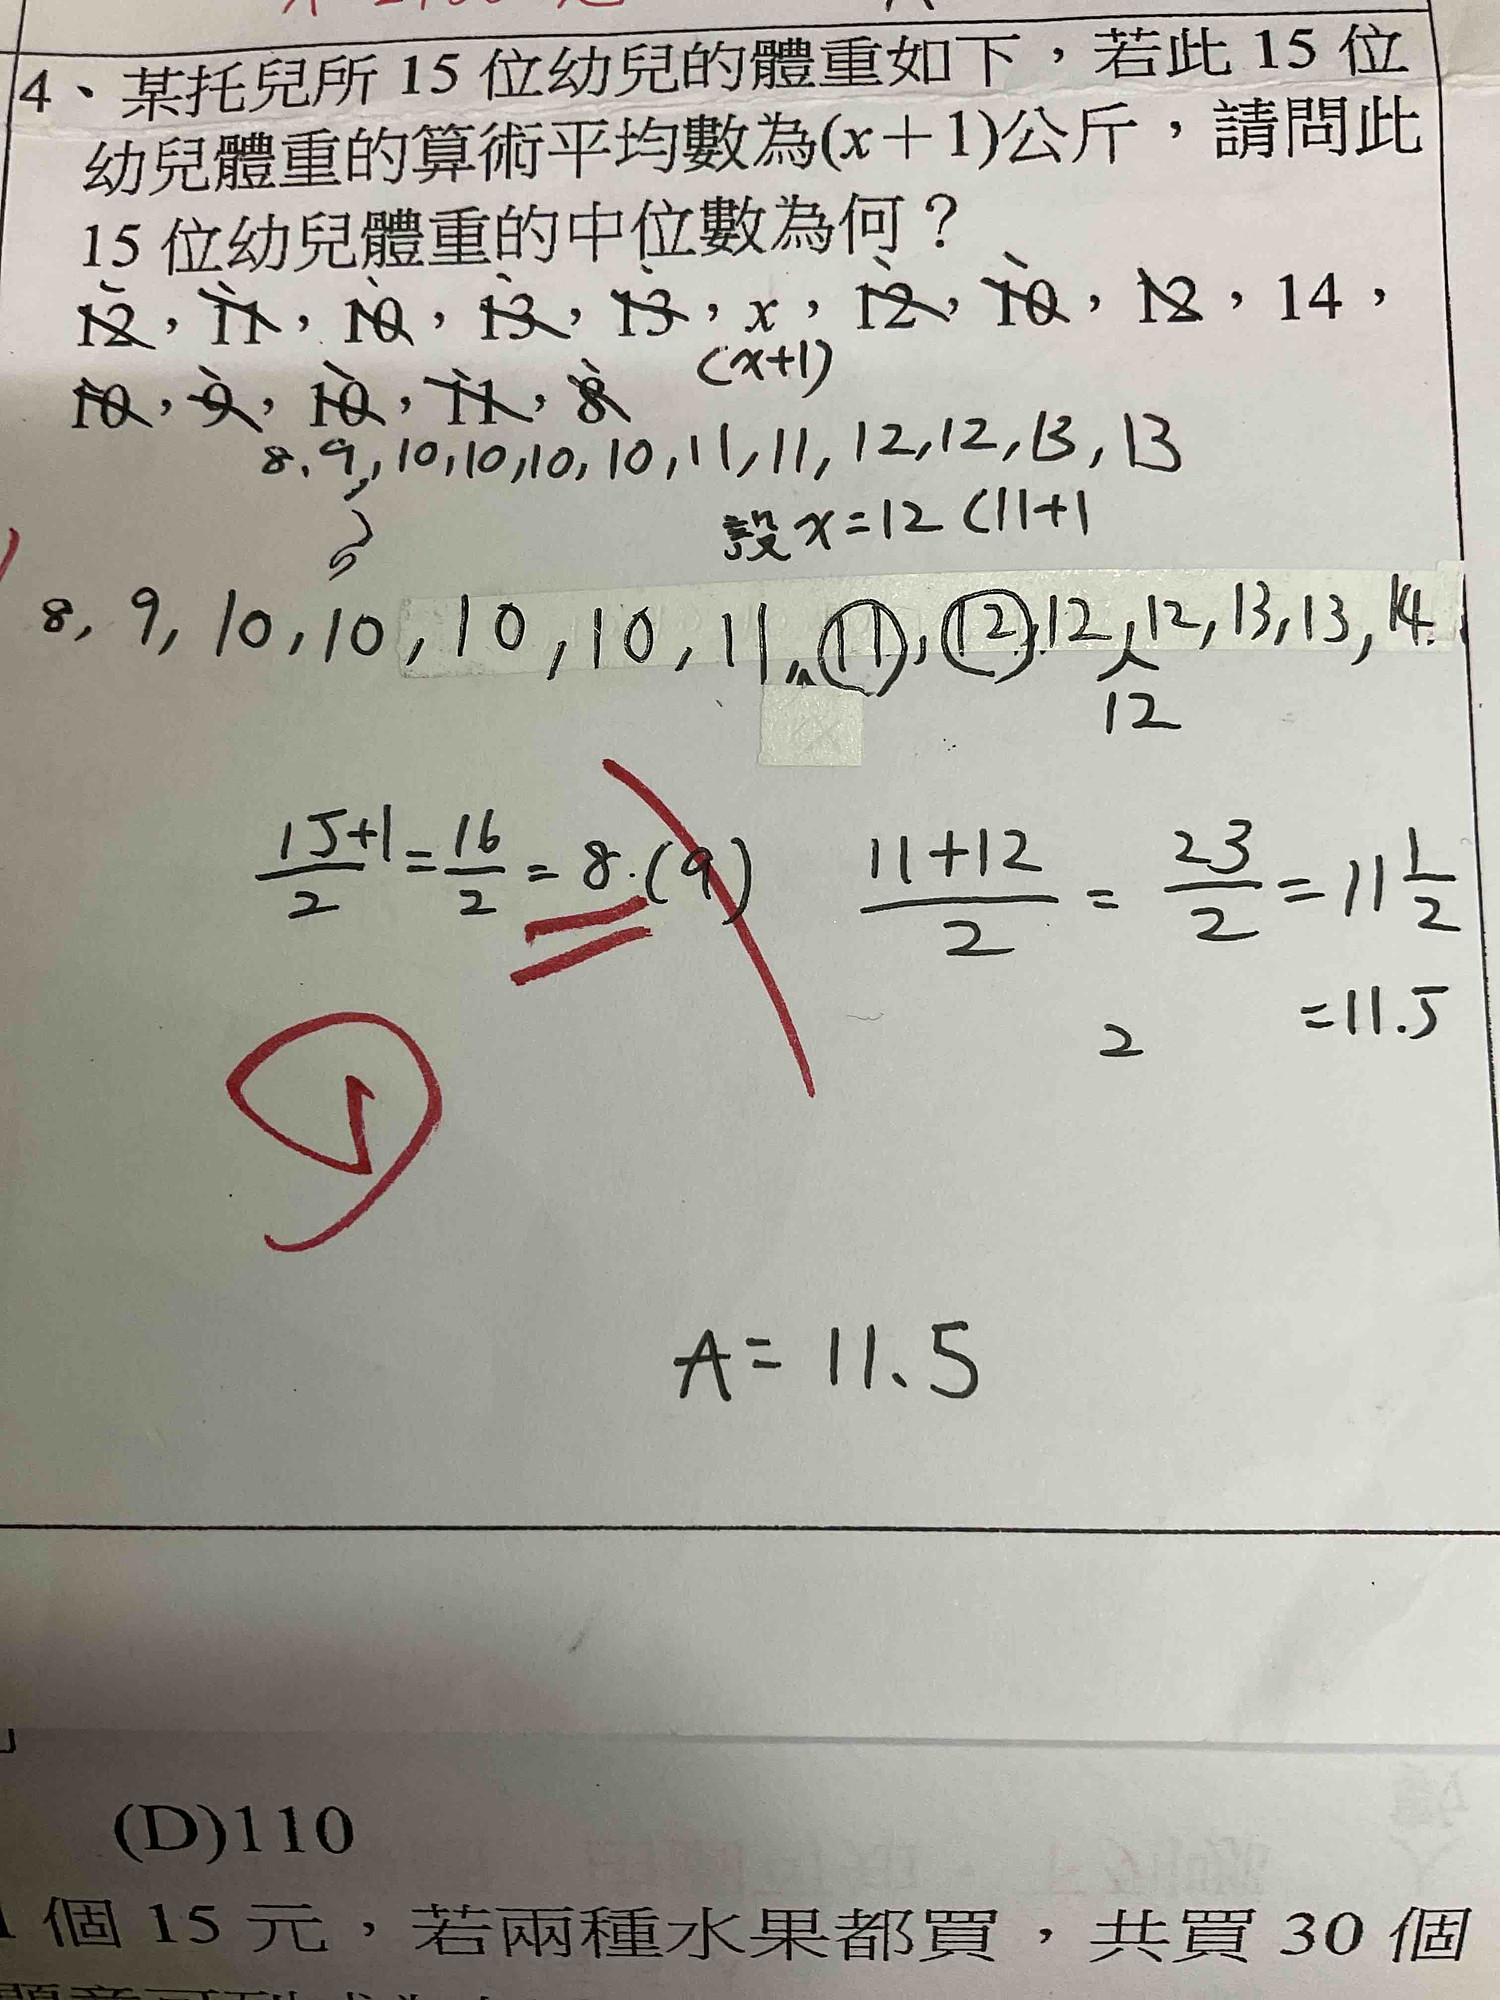 4、某托兒所 15 位幼兒的體重如下,若此 15 位
幼兒體重的算術平均數為(x+1)公斤,請問此
15 位幼兒體重的中位數為何?
12,11,10,13,13,x,12,10,12,14,
(x+1)
10,9,10,11,8
8,9,10,10,10,10,11,11,12,12,13,13
設x=12(11+1
8,9,10,10,10,10,11,11,12,12,12,13,13,14
12
15+1/2=16/2=8.(9)
11+12/2=23/2=11 1/2
=11.5
2
A=11.5
(D)110
個 15 元,若兩種水果都買,共買 30 個